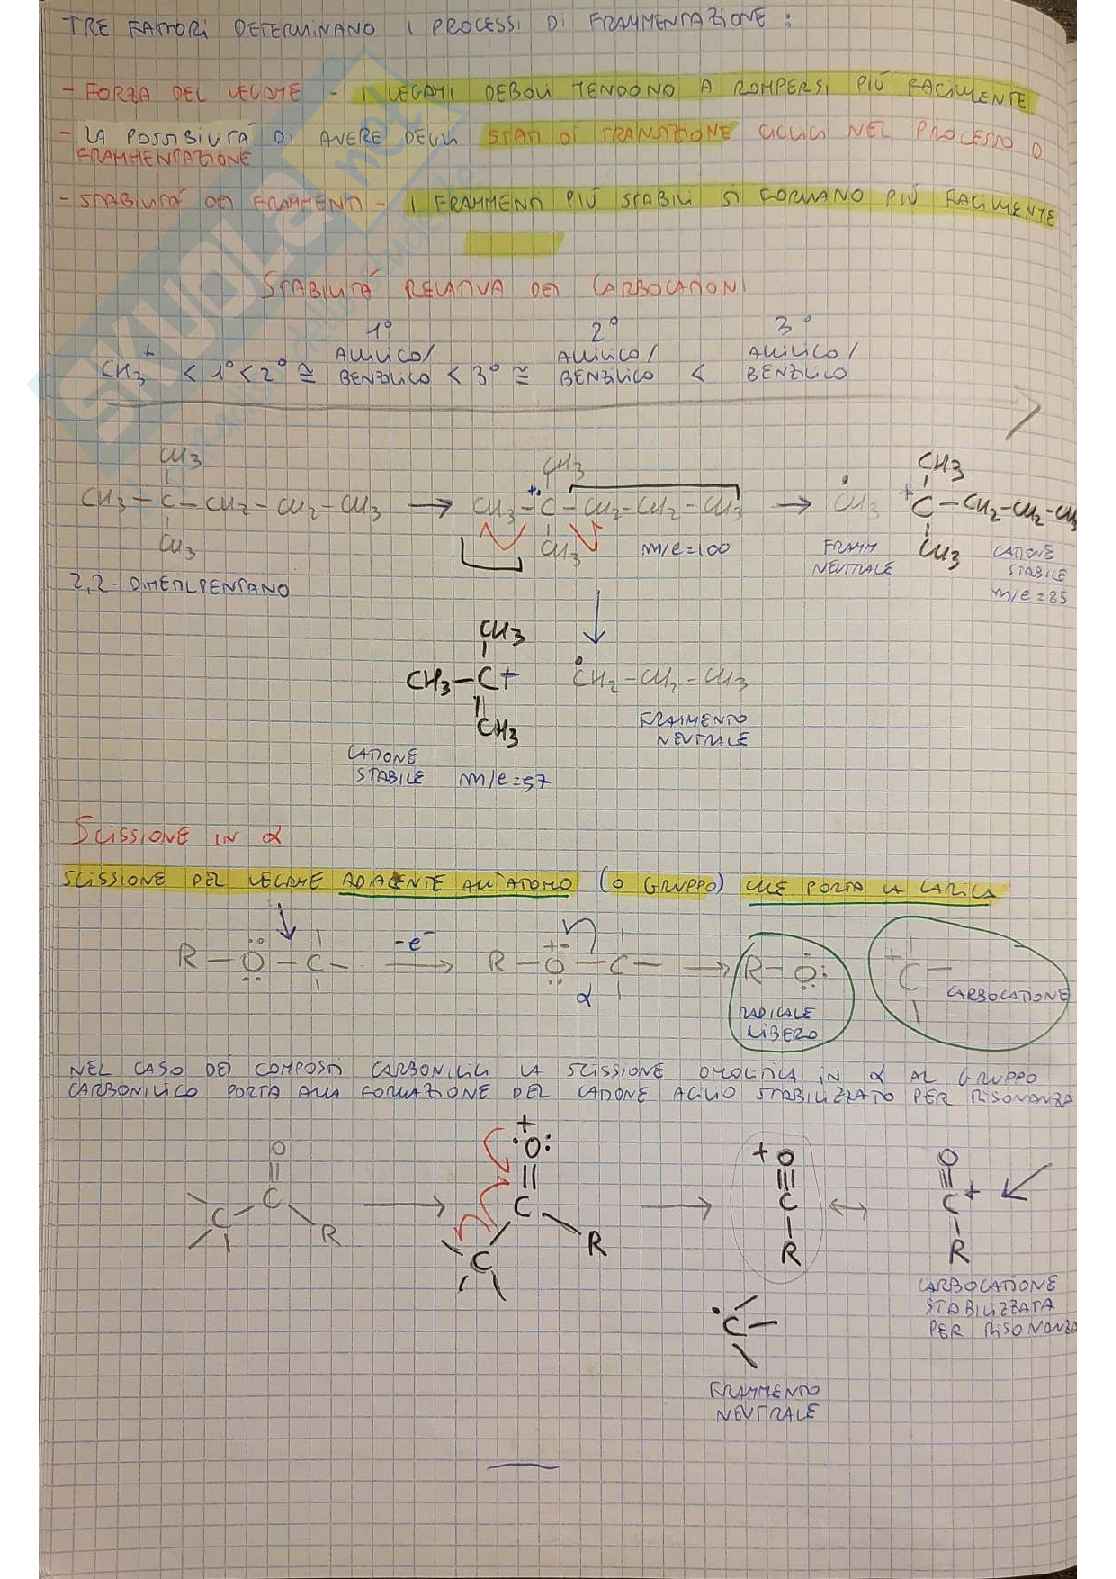 TRE FATTORI DETERMINANO I PROCESSI DI FRAMMENTAZIONE:
- FORZA DEL LEGAME - I LEGAMI DEBOLI TENDONO A ROMPERSI PIÙ FACILMENTE
- LA POSSIBILITÀ DI AVERE DEGLI STATI DI TRANSIZIONE CICLICI NEL PROCESSO D
FRAMMENTAZIONE
- STABILITÀ DEI FRAMMENTI - I FRAMMENTI PIÙ STABILI SI FORMANO PIÙ FACILMENTE
STABILITÀ RELATIVA DEI CARBOCATIONI
1° 2° 3°
ALLILICO/ ALLILICO/ ALLILICO/
CH3+ < 1° < 2° ≅ BENZILICO < 3° ≅ BENZILICO < BENZILICO
CH3 CH3 CH3
CH3 - C - CH2 - CH2 - CH3 → CH3 - C - CH2 - CH2 - CH3 → CH3 + C - CH2 - CH2 - CH3
CH3 CH3 m/e = 100 FRAMM CH3 CATIONE
NEUTRALE STABILE
2,2 DIMETILPENTANO m/e = 85
CH3
CH3 - C+ CH2 - CH2 - CH3
CH3
FRAMMENTO
NEUTRALE
CATIONE
STABILE m/e = 57
SCISSIONE IN α
SCISSIONE DEL LEGAME ADIACENTE ALL'ATOMO (O GRUPPO) CHE PORTA LA CARICA
R - O - C - -e- → R - O - C - → R - O: + C -
α CARBOCATIONE
RADICALE
LIBERO
NEL CASO DEI COMPOSTI CARBONILICI LA SCISSIONE OMOLITICA IN α AL GRUPPO
CARBONILICO PORTA ALLA FORMAZIONE DEL CATIONE ACILIO STABILIZZATO PER RISONANZA
+
O O: + O O
C C C C +
C R C R R R
CARBOCATIONE
STABILIZZATA
PER RISONANZA
C
FRAMMENTO
NEUTRALE
SKUOLA.net